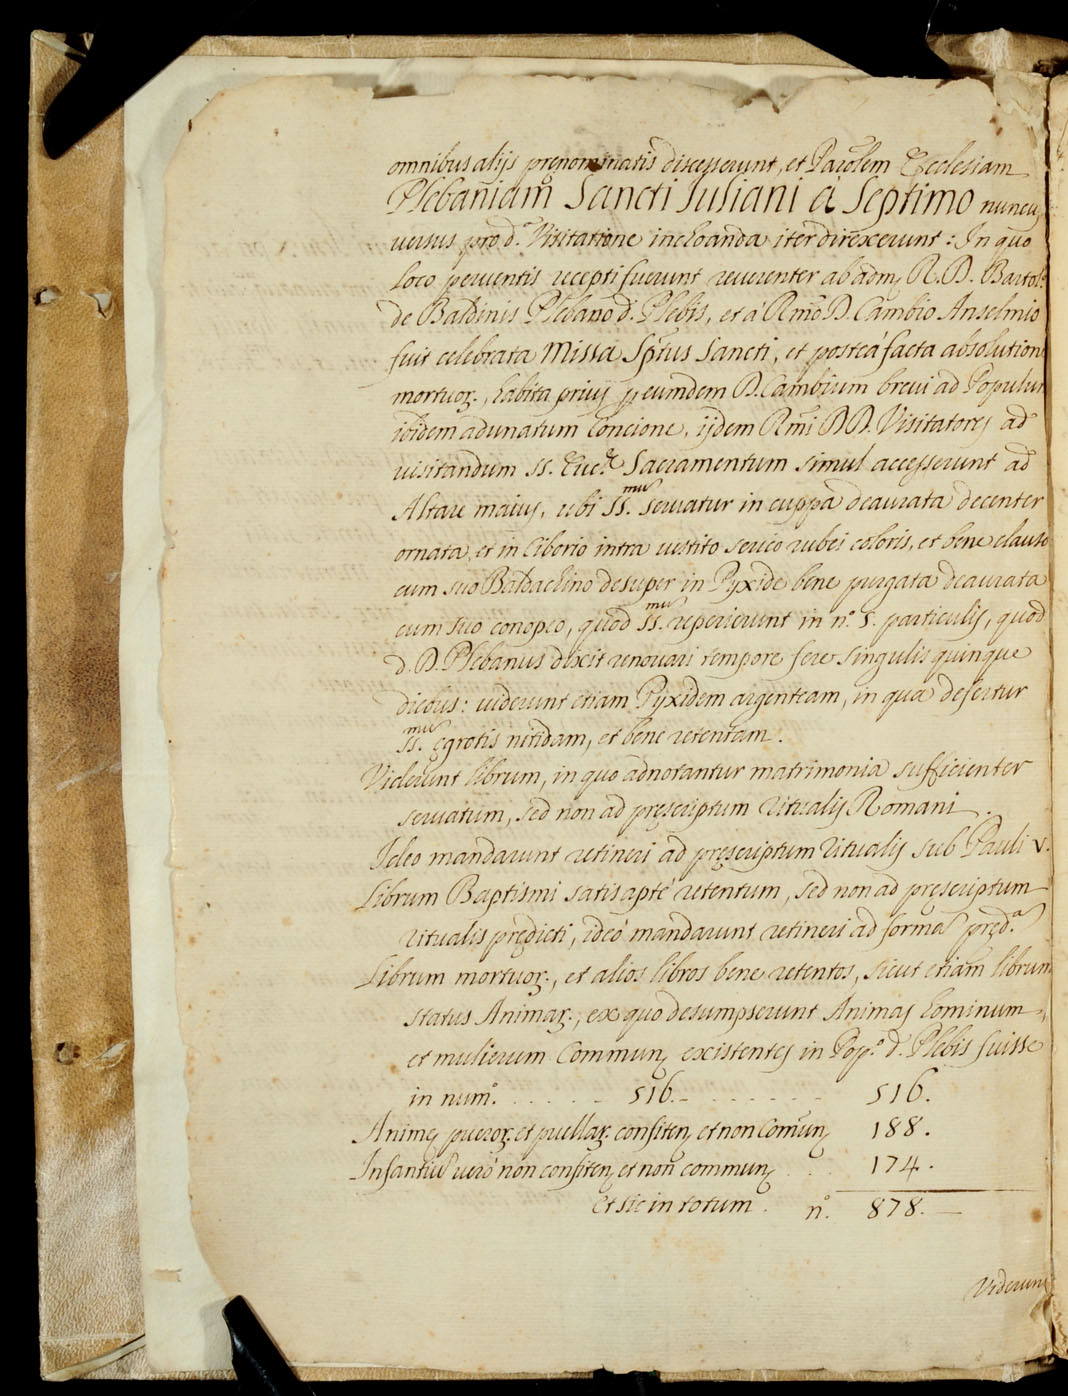 omnibus alijs pręnominatis discesserunt, et Paro͂lem Ecclesiam
Plebaniam Sancti Iuliani à Septimo nuncu
uersus pro d.ᵃ Visitatione inchoanda iter direxerunt: In quo
loco peruentis recepti fuerunt reuerenter ab adm. R. D. Bartol.º
de Baldinis Plebano d.ᵉ Plebis, et à Rm̃o D. Cambio Anselmio
fuit celebrata Missa Spt̃us Sancti, et posteà facta absolution
mortuor., habita prius p eumdem D. Cambium breui ad Populum
ibidem adunatum concione, ijdem Rm̃i DD. Visitatores ad
uisitandum SS. Euc.ᵉ Sacramentum simul accesserunt ad
Altare maius, ubi SS.ᵐᵘᵐ seruatur in cuppa deaurata decenter
ornata, et in Ciborio intra uestito serico rubei coloris, et bene clauso
cum suo Baldachino desuper in Pyxide bene purgata deaurata
cum suo conopeo, quod SS.ᵐᵘᵐ reperierunt in n.º 5. particulis, quod
d. D. Plebanus dixit renouari tempore fere singulis quinque
diebus: uiderunt etiam Pyxidem argenteam, in qua defertur
SS.ᵐᵘᵐ ęgrotis nitidam, et bene retentam.
Viderunt librum, in quo adnotantur matrimonia sufficienter
seruatum, sed non ad pręscriptum Ritualis Romani.
Ideo mandarunt retineri ad pręscriptum Ritualis sub Pauli V.
Librum Baptismi satis aptè retentum, sed non ad pręscriptum
Ritualis prędicti, ideò mandarunt retineri ad formã pręd.ᵃ
Librum mortuor., et alios libros bene retentos, sicut etiam librum
status Animar., ex quo desumpserunt Animas hominum
et mulierum Commun. existentes in Pop.º d.ᵉ Plebis fuisse
in num.º . . . . . 516. . . . . . . . 516.
Animę pueror. et puellar. confiten. et non Comũn. 188.
Infantiũ uerò non confiten. et non commun. . . . 174.
Et sic in totum. n.º 878.
Viderunt